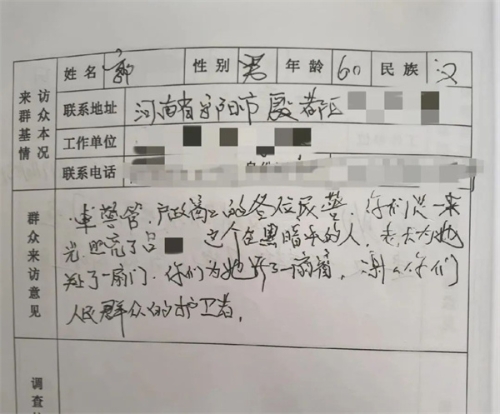 来访群众基本情况
姓名 郭 性别 男 年龄 60 民族 汉
联系地址 河南省安阳市殷都区
工作单位
联系电话
群众来访意见
警管、户政窗口的各位民警,你们一束
光照亮了吕 这个在黑暗中的人,老天为她
关了一扇门,你们为她开了一扇窗,谢谢你们
人民群众的护卫者。
调查